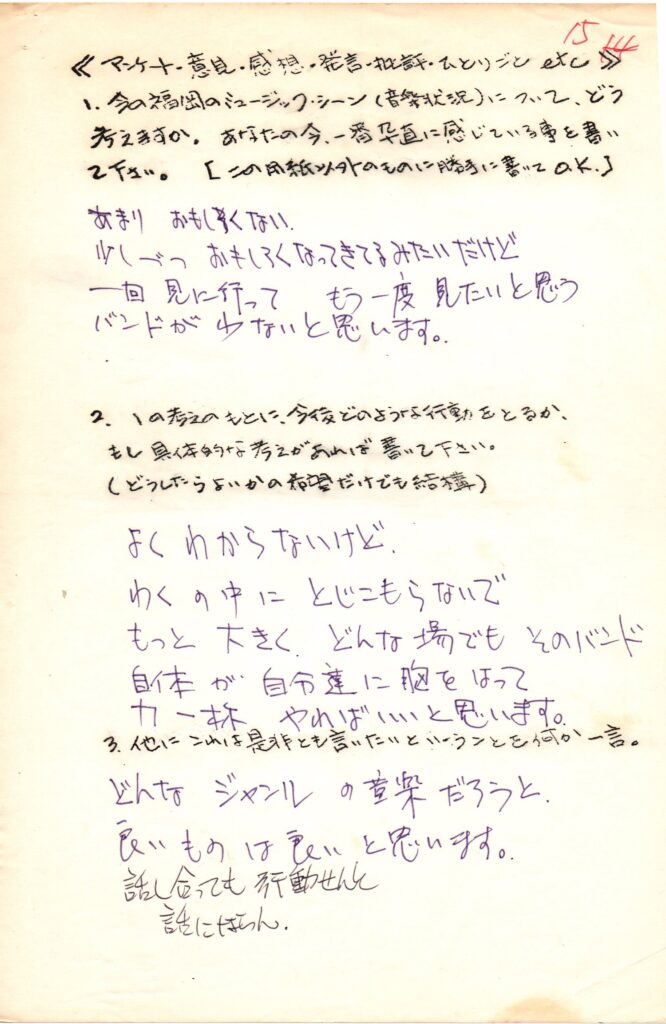 15 14
《 アンケート・意見・感想・発言・批評・ひとりごと etc 》
1. 今の福岡のミュージック・シーン(音楽状況)について、どう
考えますか。あなたの今、一番卒直に感じている事を書い
て下さい。[この用紙以外のものに勝手に書いてO.K.]
あまり おもしろくない.
少しづつ おもしろくなってきてるみたいだけど
一回 見に行って もう一度 見たいと思う
バンドが 少ないと思います。
2. 1の考えのもとに、今後どのような行動をとるか、
もし具体的な考えがあれば書いて下さい。
(どうしたらよいかの希望だけでも結構)
よく わからないけど.
わく の中に とじこもらないで
もっと 大きく. どんな場でも そのバンド
自体 が 自分達に胸をはって
力一杯 やればいいと思います。
3. 他にこれは是非とも言いたいということを何か一言。
どんな ジャンル の音楽だろうと.
良い ものは 良い と思います。
話し合っても 行動せんと
話にならん.